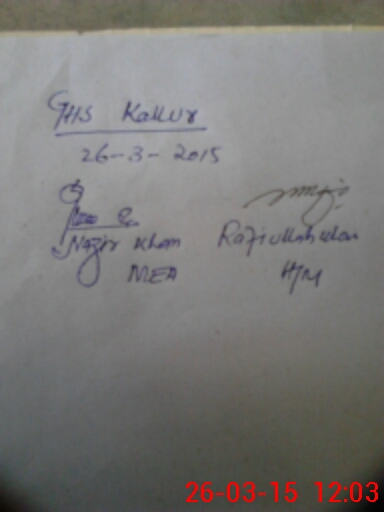 GHS Kallur
26-3-2015
Nazir Khan
MEA
Rafiullah Khan
H/M
26-03-15 12:03